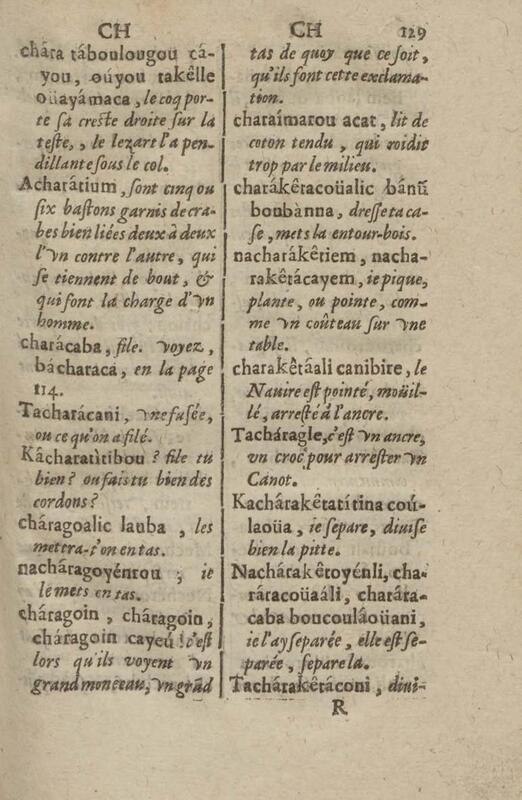 CH
chára táboulougou tá-
you, oúyou takêlle
oüayámaca, le coq por-
te sa creste droite sur la
teste,, le lezart l'a pen-
dillante sous le col.
Acharátium, sont cinq ou
six bastons garnis de cra-
bes bien liées deux à deux
l'vn contre l'autre, qui
se tiennent de bout, &
qui font la charge d'vn
homme.
charácaba, file. voyez,
bácharaca, en la page
114.
Tacharácani, vne fusée,
ou ce qu'on a filé.
Kâcharatìtibou? file tu
bien? ou fais tu bien des
cordons?
cháragoalic lauba, les
mettra-t'on en tas.
nacháragoyénrou; ie
le mets en tas.
cháragoin, cháragoin,
cháragoin cayeú! c'est
lors qu'ils voyent vn
grand monceau, vn grãd
CH 129
tas de quoy que ce soit,
qu'ils font cette exclama-
tion.
charaímarou acat, lit de
coton tendu, qui roidit
trop par le milieu.
charákêtacoüalic bánũ
boubànna, dresse ta ca-
se, mets la entour-bois.
nacharákêtiem, nacha-
rakêtácayem, ie pique,
plante, ou pointe, com-
me vn coûteau sur vne
table.
charakêtáali canibire, le
Nauire est pointé, moüil-
lé, arresté à l'ancre.
Tacháragle, c'est vn ancre,
vn croc pour arrester vn
Canot.
Kachárakêtatítina coú-
laoüa, ie separe, diuise
bien la pitte.
Nachárakêtoyénli, cha-
ráracoüaáli, charára-
caba boucoulâoüani,
ie l'ay separée, elle est se-
parée, separe la.
Tachárakêtáconi, diui-
R